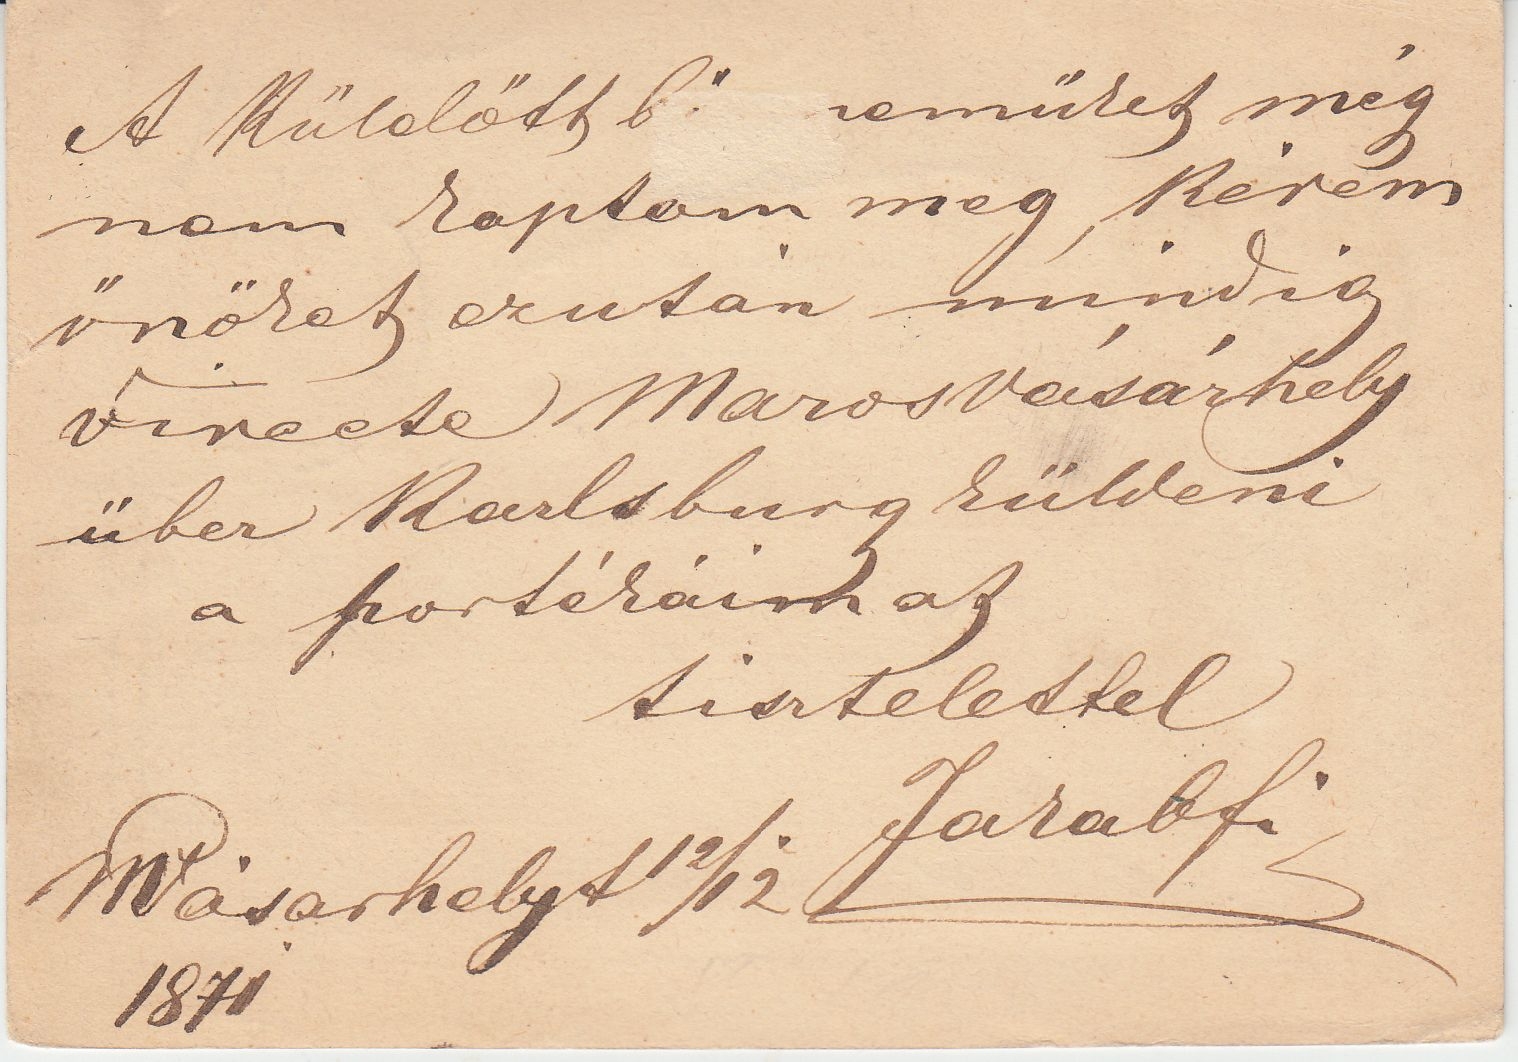 A Küldött bő neműket még
nem kaptam meg, Kérem
önöket ezután mindig
directe MarosVásárhely
über Karlsburg küldeni
a portékáimat
tisztelettel
Jakabfi
MVásárhelyt 12/12
1871